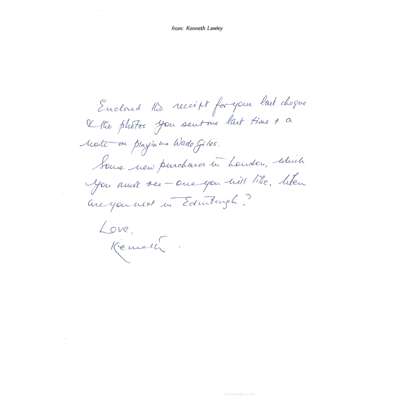 from: Kenneth Lawley
Enclosed the receipt for your last cheque
& the photos you sent me last time + a
note on pinyin Wade Giles.
Some new purchases in London, which
you must see – one you will like. When
are you next in Edinburgh?
Love,
Kenneth.